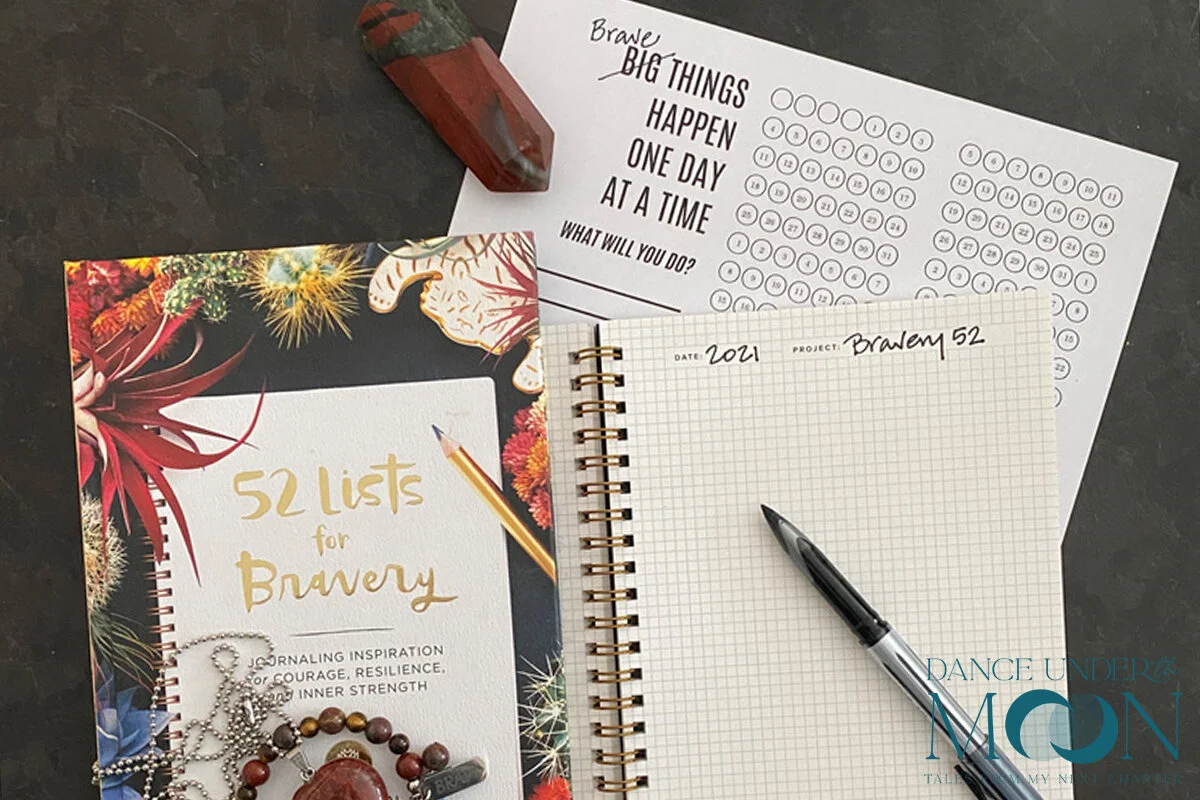 Brave
BIG THINGS
HAPPEN
ONE DAY
AT A TIME
WHAT WILL YOU DO?
1 2 3
4 5 6 7 8 9 10
11 12 13 14 15 16 17
18 19 20 21 22 23 24
25 26 27 28 29 30 31
1 2 3 4 5 6 7
8 9 10 11 12 13 14
15 16
5 6 7 8 9 10 11
12 13 14 15 16 17 18
19 20 21 22 23 24 25
26 27 28 29 30 31 1
2 3 4 5 6 7 8
15
22
DATE: 2021 PROJECT: Bravery 52
52 Lists
for
Bravery
JOURNALING INSPIRATION
for COURAGE, RESILIENCE,
and INNER STRENGTH
BRAVE
DANCE UNDER the
MOON
TALES FROM MY NEXT CHAPTER